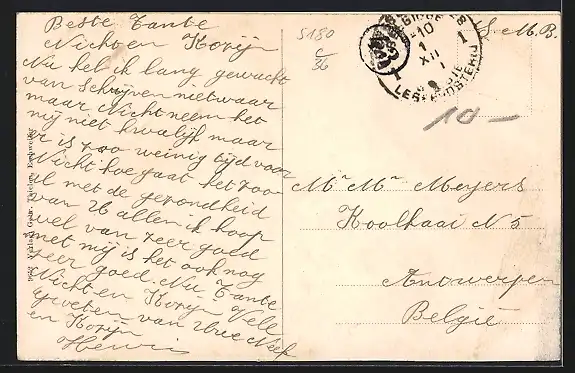 Beste Tante
Nicht en Kozijn
Nu heb ik lang gewacht
van Schrijven nietwaar
maar Nicht neem het
mij niet kwalijk maar
er is zoo weinig tijd voor
Nicht hoe gaat het zoo
al met de gezondheid
van U allen ik hoop
wel van zeer goed
met mij is het ook nog
zeer goed. Nu Tante
Nicht en Kozijn Vele
groeten van Uwe Neef
en Kozijn
Henri
S180
C/36
S. M. B.
10 –
Mr Mr Meyers
Koolkaai N 5
Antwerpen
België